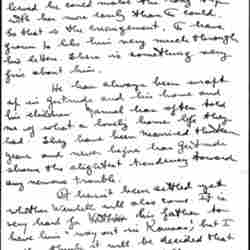 lieved he could make the long trip
with her more easily than I could.
So that is the arrangement. I have
grown to like him very much through
his letters. There is something very
fine about him.
He has always been
of is Gertrude and his home and
his children. Garned has often told
me of what a lovely home life they
had. They have been married thirteen
years and never before has Gertrude
shown the slightest tendency toward
any nervous trouble.
It hasn't been settled yet
whether Wendell will also come. It is
very hard for his father to
have him 'way out in Kansas, but I
think it will be decided that